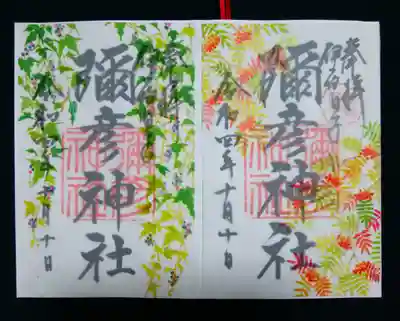 奉拝
伊夜日子
彌彦神社
令和四年十月十日
奉拝
彌彦神社
令和四年十月十日